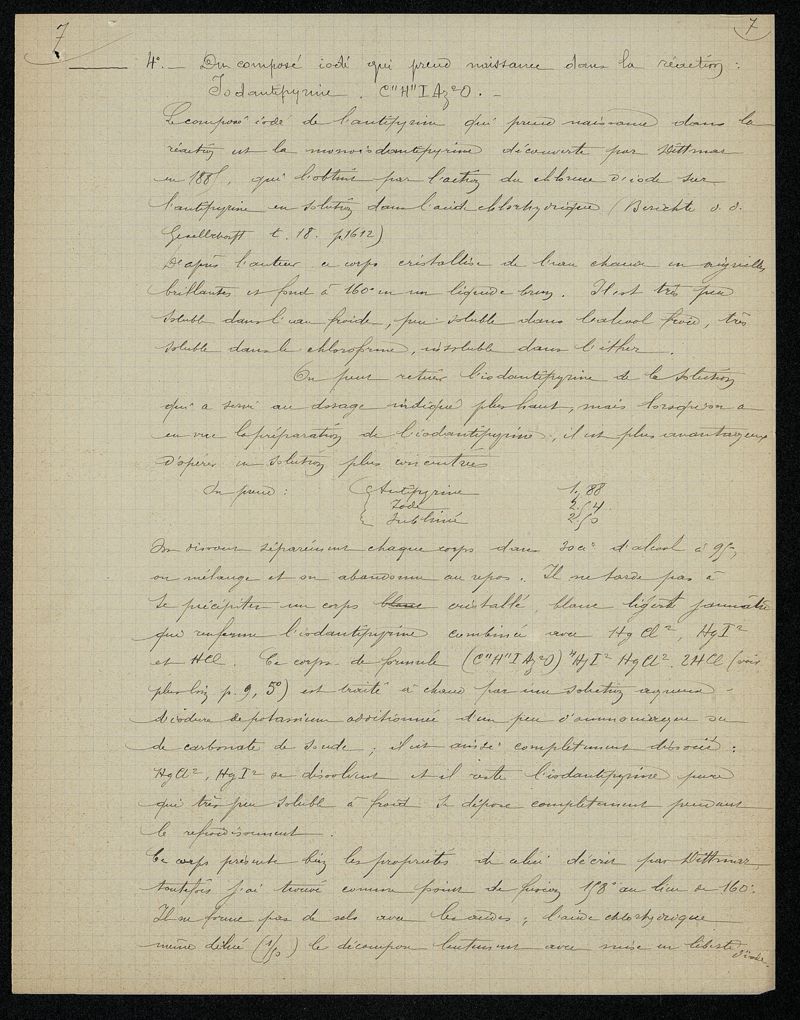 7
7
4º. — Du composé iodé qui prend naissance dans la réaction :
Iodantipyrine. C"H"I Az²O. —
Le composé iodé de l'antipyrine qui prend naissance dans la
réaction est la monoiodantipyrine découverte par Dittmar
en 1885, qui l'obtint par l'action du chlorure d'iode sur
l'antipyrine en solution dans l'acide chlorhydrique (Berichte d. d.
Gesellschaft t. 18. p.1612)
D'après l'auteur ce corps cristallise de l'eau chaude en aiguilles
brillantes et fond à 160° en un liquide brun. Il est très peu
soluble dans l'eau froide, peu soluble dans l'alcool froid, très
soluble dans le chloroforme, insoluble dans l'éther.
On peut retirer l'iodantipyrine de la solution
qui a servi au dosage indiqué plus haut, mais lorsqu'on a
en vue la préparation de l'iodantipyrine, il est plus avantageux
d'opérer en solution plus concentrée
On prend : { Antipyrine 1,88
Iode 2.54
Sublimé 2,50
On dissout séparément chaque corps dans 30cc d'alcool à 95°,
on mélange et on abandonne au repos. Il ne tarde pas à
se précipiter un corps blanc cristallé, blanc légèrt jaunâtre
qui renferme l'iodantipyrine combinée avec HgCl², HgI²
et HCl. Ce corps de formule (C"H"I Az²O)⁴HgI² HgCl² 2HCl (voir
plus loin p. 9, 5º) est traité à chaud par une solution aqueuse
d'iodure de potassium additionnée d'un peu d'ammoniaque ou
de carbonate de soude ; il est ainsi complètement dissocié :
HgCl², HgI² se dissolvent et il reste l'iodantipyrine pure
qui très peu soluble à froid se dépose complètement pendant
le refroidissement.
Ce corps présente bien les propriétés de celui décrit par Dittmar
toutefois j'ai trouvé comme point de fusion 158° au lieu de 160°.
Il ne forme pas de sels avec les acides ; l'acide chlorhydrique
même dilué (1/50) le décompose lentement avec mise en liberté d'iode.